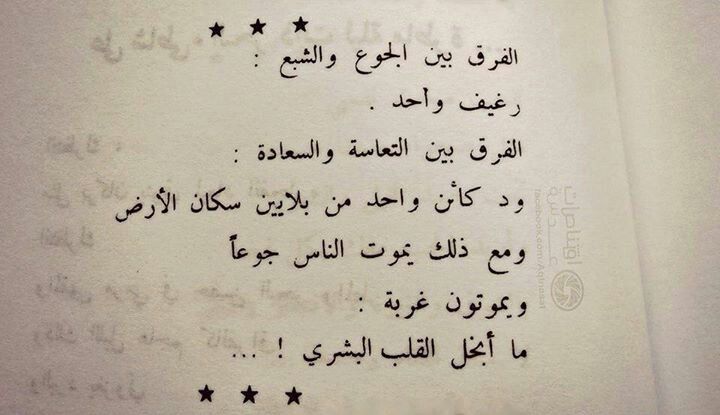 ★ ★ ★
الفرق بين الجوع والشبع :
رغيف واحد .
الفرق بين التعاسة والسعادة :
ود كائن واحد من بلايين سكان الأرض
ومع ذلك يموت الناس جوعاً
ويموتون غربة :
ما أبخل القلب البشري ! ...
★ ★ ★